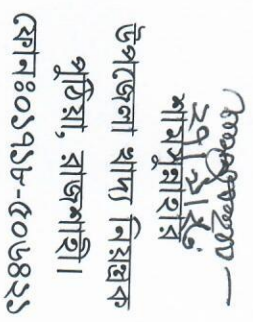 শামসুন্নাহার
উপজেলা খাদ্য নিয়ন্ত্রক
পুঠিয়া, রাজশাহী।
ফোনঃ০১৭১৮-৫০৬৪২১